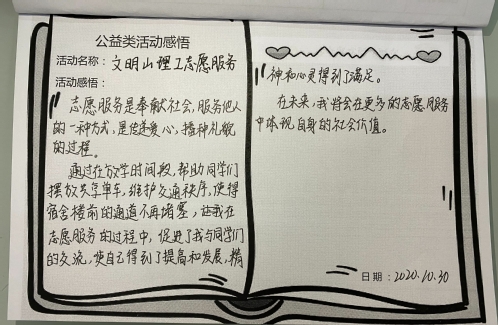 公益类活动感悟
活动名称：文明山理工志愿服务
活动感悟：
志愿服务是奉献社会，服务他人
的一种方式，是传递爱心，播种礼貌
的过程。
通过在放学时间段，帮助同学们
摆放共享单车，维护交通秩序，使得
宿舍楼前的通道不再堵塞，让我在
志愿服务的过程中，促进了我与同学们
的交流，使自己得到了提高和发展，精
神和心灵得到了满足。
在未来，我将会在更多的志愿服务
中体现自身的社会价值。
日期：2020.10.30